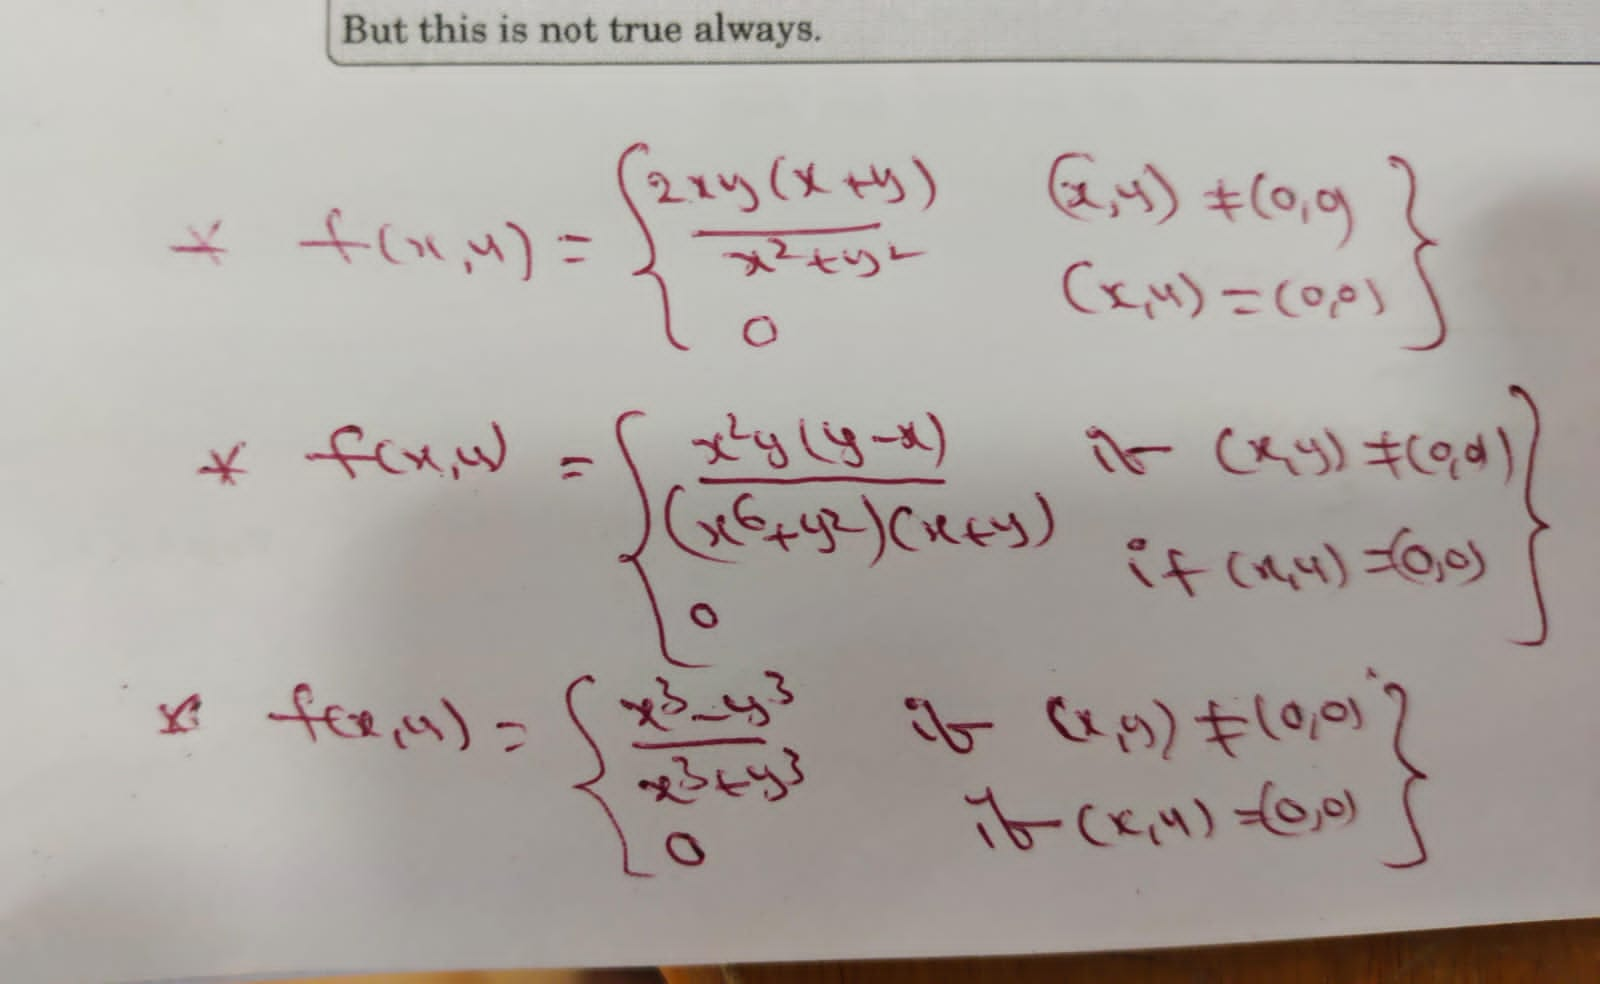 But this is not true always.
* f(x,y) = { 2xy(x+y) / x²+y² (x,y) ≠ (0,0)
0 (x,y) = (0,0) }
* f(x,y) = { x²y(y-x) / (x⁶+y²)(x+y) if (x,y) ≠ (0,0)
0 if (x,y) = (0,0) }
* f(x,y) = { x³-y³ / x³+y³ if (x,y) ≠ (0,0)
0 if (x,y) = (0,0) }